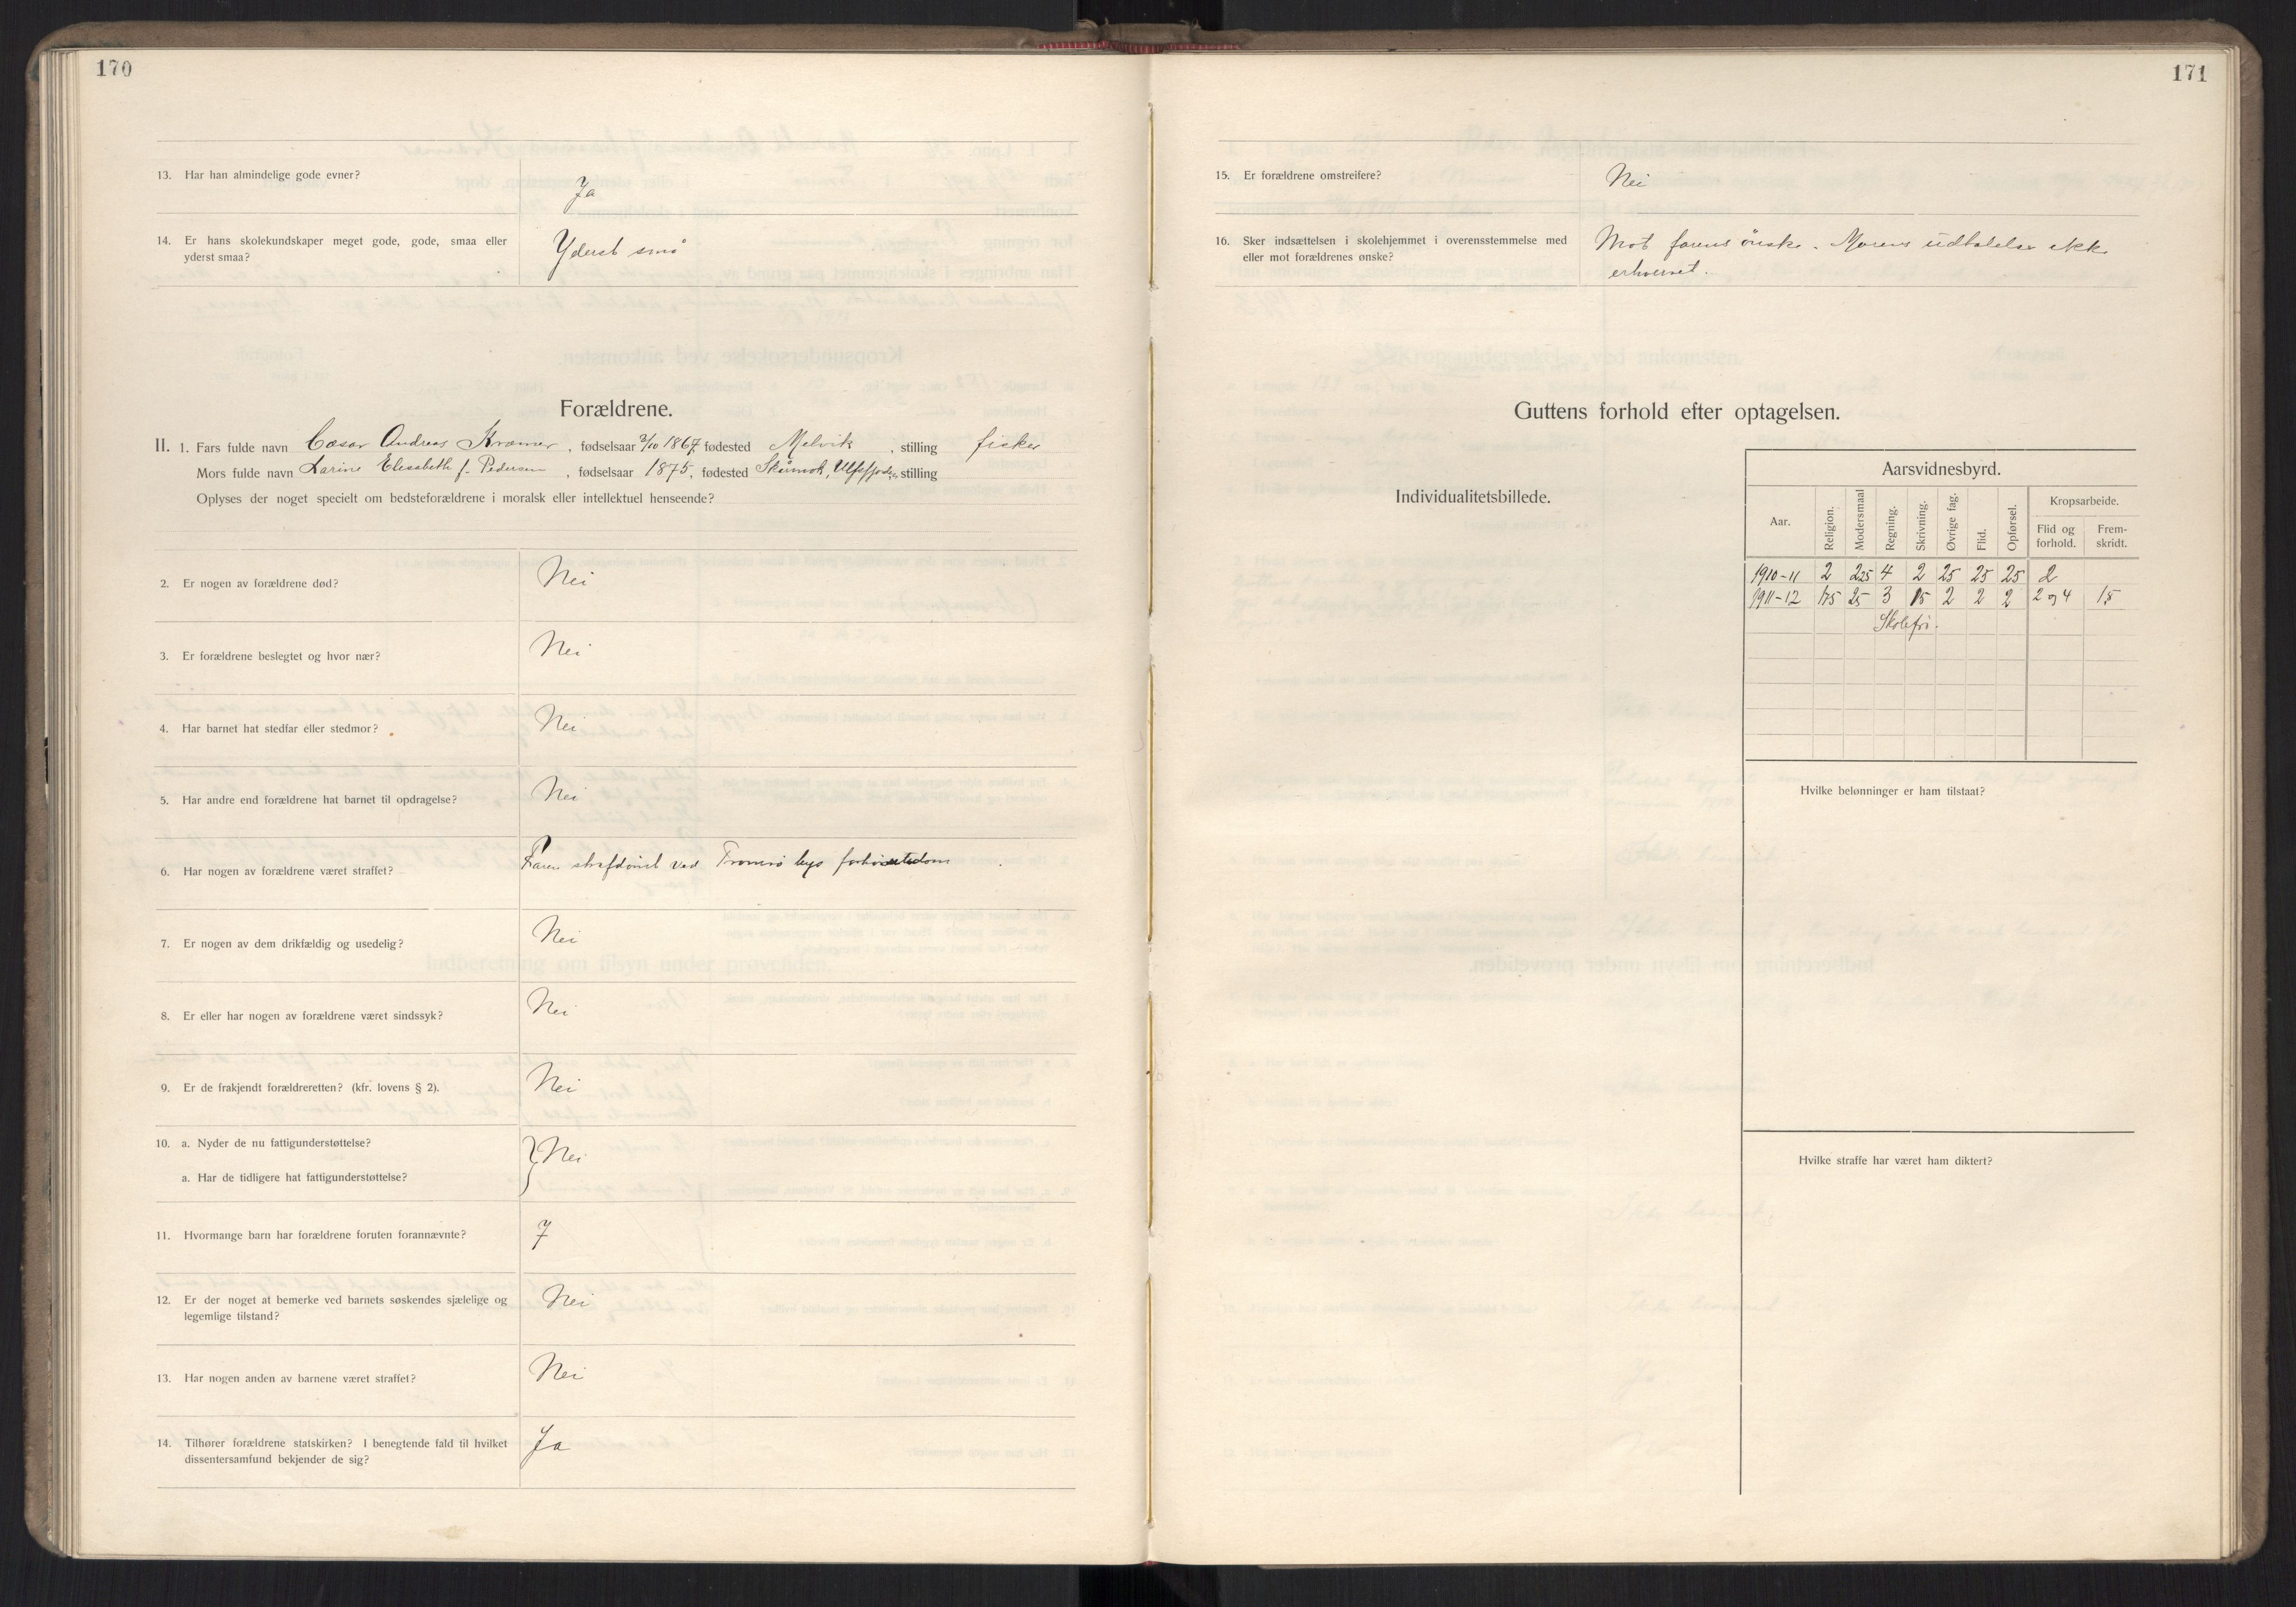 170
13. Har han almindelige gode evner?
Ja
14. Er hans skolekundskaper meget gode, gode, smaa eller
yderst smaa?
Yderst små
Forældrene.
II. 1. Fars fulde navn Cæsar Andreas Kræmer, fødselsaar 2/10 1867, fødested Melvik, stilling fisker
Mors fulde navn Larine Elisabeth f. Pedersen, fødselsaar 1875, fødested Skårmoh, Ulfsfjord, stilling
Oplyses der noget specielt om bedsteforældrene i moralsk eller intellektuel henseende?
2. Er nogen av forældrene død?
Nei
3. Er forældrene beslegtet og hvor nær?
Nei
4. Har barnet hat stedfar eller stedmor?
Nei
5. Har andre end forældrene hat barnet til opdragelse?
Nei
6. Har nogen av forældrene været straffet?
Faren strafdömt ved Tromsö bys
7. Er nogen av dem drikfældig og usedelig?
Nei
8. Er eller har nogen av forældrene været sindssyk?
Nei
9. Er de frakjendt forældreretten? (kfr. lovens § 2).
Nei
10. a. Nyder de nu fattigunderstøttelse?
Nei
a. Har de tidligere hat fattigunderstøttelse?
11. Hvormange barn har forældrene foruten forannævnte?
7
12. Er der noget at bemerke ved barnets søskendes sjælelige og
legemlige tilstand?
Nei
13. Har nogen anden av barnene været straffet?
Nei
14. Tilhører forældrene statskirken? I benegtende fald til hvilket
dissentersamfund bekjender de sig?
Ja
171
15. Er forældrene omstreifere?
Nei
16. Sker indsættelsen i skolehjemmet i overensstemmelse med
eller mot forældrenes ønske?
Mot farens önske. Morens udtalelse ikke
erhvervet.
Guttens forhold efter optagelsen.
Individualitetsbillede.
Aarsvidnesbyrd.
Aar. Religion. Modersmaal Regning. Skrivning. Øvrige fag. Flid. Opførsel. Kropsarbeide.
Flid og forhold. Fremskridt.
1910-11 2 225 4 2 25 25 25 2
1911-12 175 25 3 15 2 2 2 2 og 4 1,5
Skolefri.
Hvilke belønninger er ham tilstaat?
Hvilke straffe har været ham diktert?